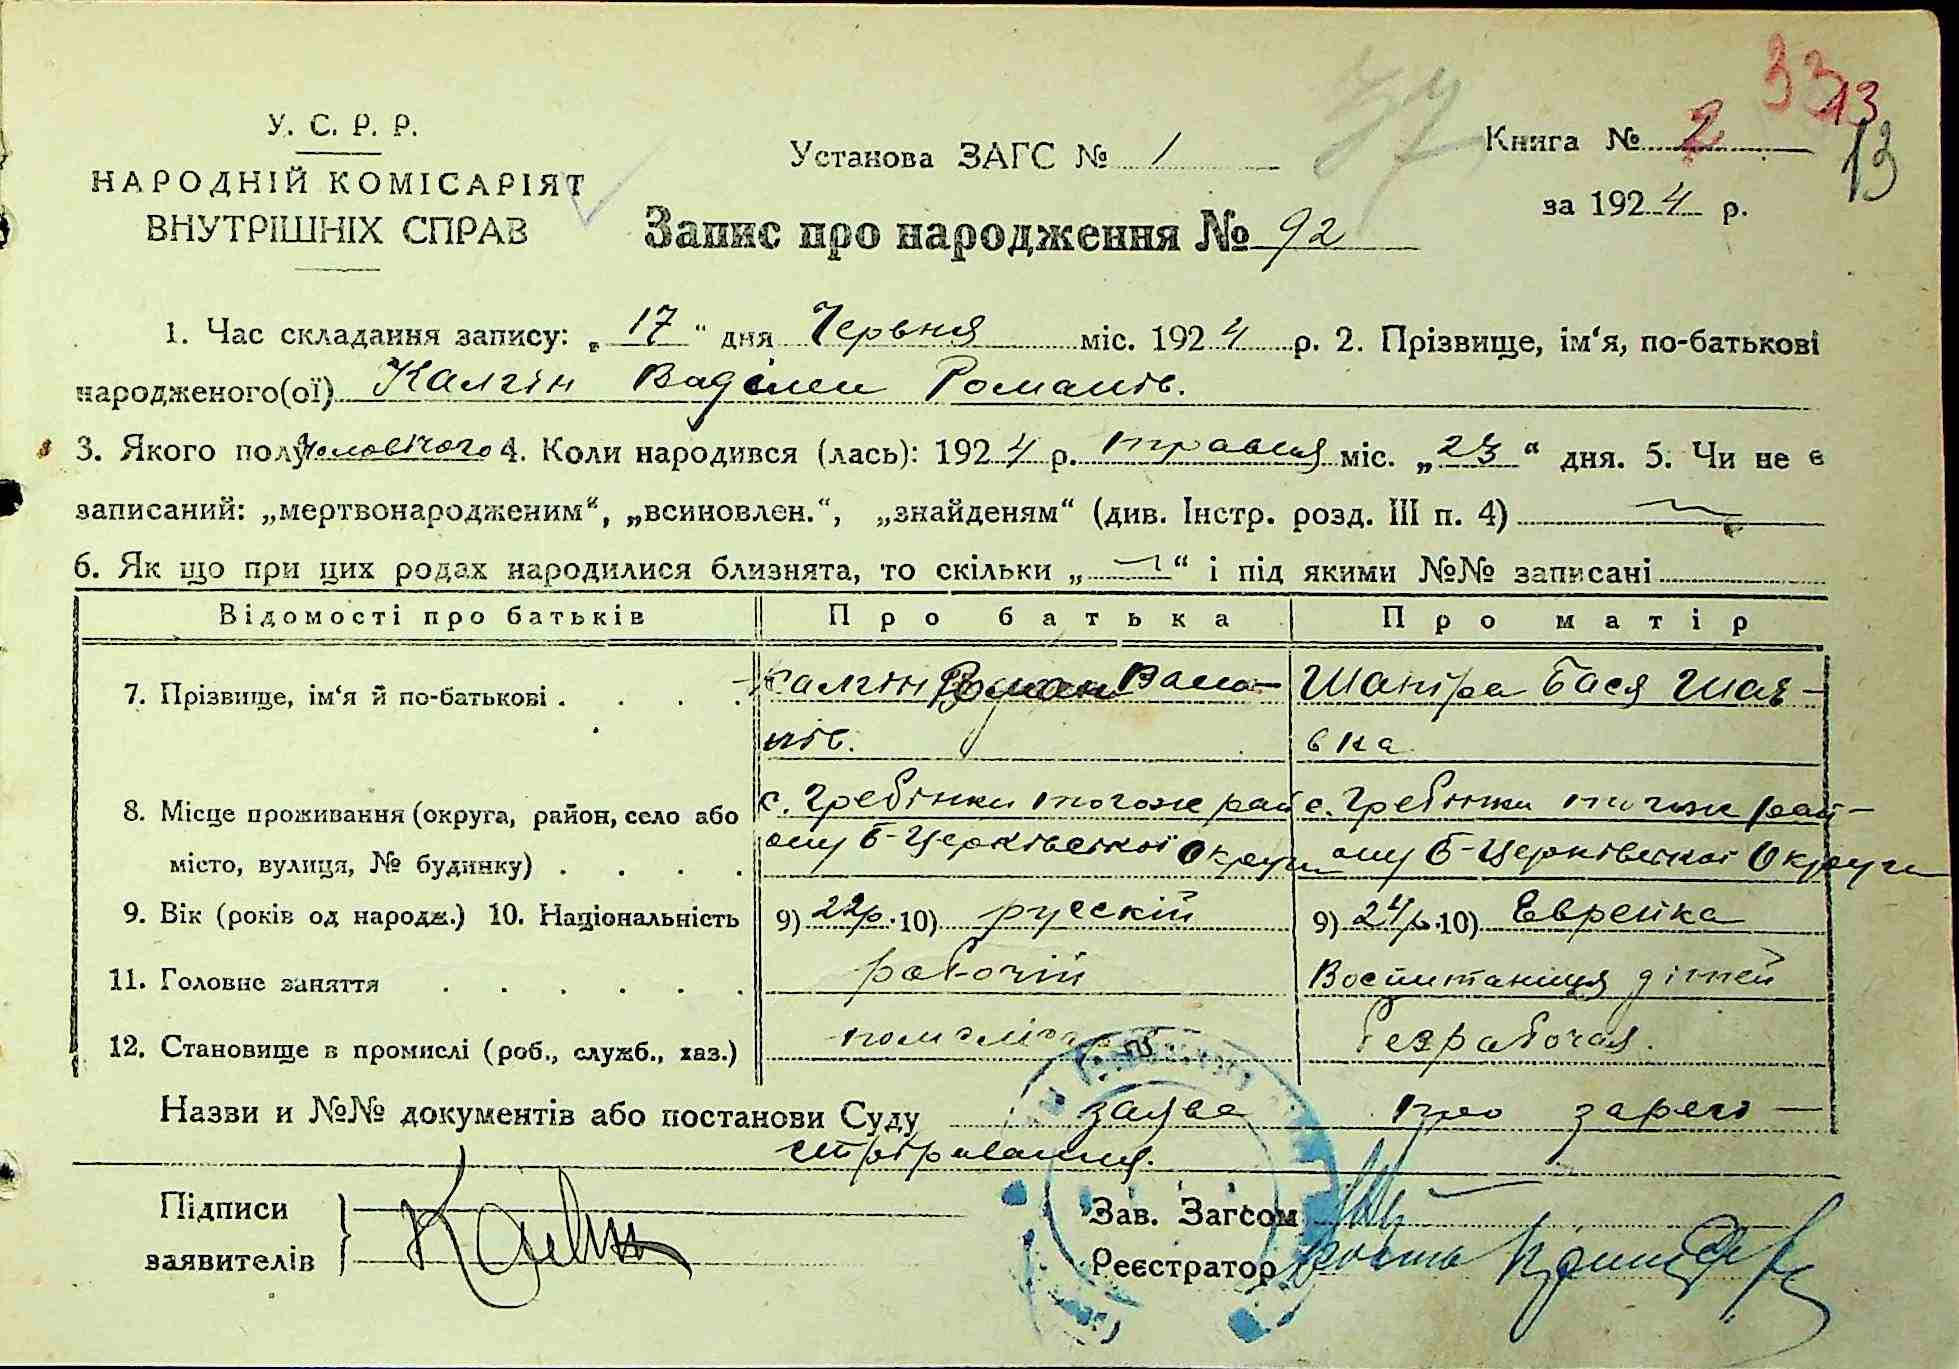 33
13
13
37
У. С. Р. Р.
НАРОДНІЙ КОМІСАРІЯТ
ВНУТРІШНІХ СПРАВ
Установа ЗАГС № 1
Книга № 2
за 1924 р.
Запис про народження № 92
1. Час складання запису: „17“ дня Червня міс. 1924 р. 2. Прізвище, ім‘я, по-батькові
народженого(ої) Калгін Романів.
3. Якого полу Чоловічого 4. Коли народився (лась): 1924 р. травня міс. „23“ дня. 5. Чи не є
записаний: „мертвонародженим“, „всиновлен.“, „знайденям“ (див. Інстр. розд. III п. 4)
6. Як що при цих родах народилися близнята, то скільки „ “ і під якими №№ записані
Відомості про батьків Про батька Про матір
7. Прізвище, ім‘я й по-батькові . . . . Калгін Роман Шапіра Бася Шая-
нів. вка
8. Місце проживання (округа, район, село або с. Гребінки тогож рай с. Гребінки тогож рай-
місто, вулиця, № будинку) . . . . ону Б-Церківської Округи ону Б-Церківської Округи
9. Вік (років од народж.) 10. Національність 9) 22р. 10) русскій 9) 24р. 10) Еврейка
11. Головне заняття . . . . . . рабочій Воспитаниця дітей
12. Становище в промислі (роб., служб., хаз.) безрабочая.
Назви и №№ документів або постанови Суду заява про зареє-
стрірування.
Підписи
заявителів
Зав. Загсом
Реєстратор